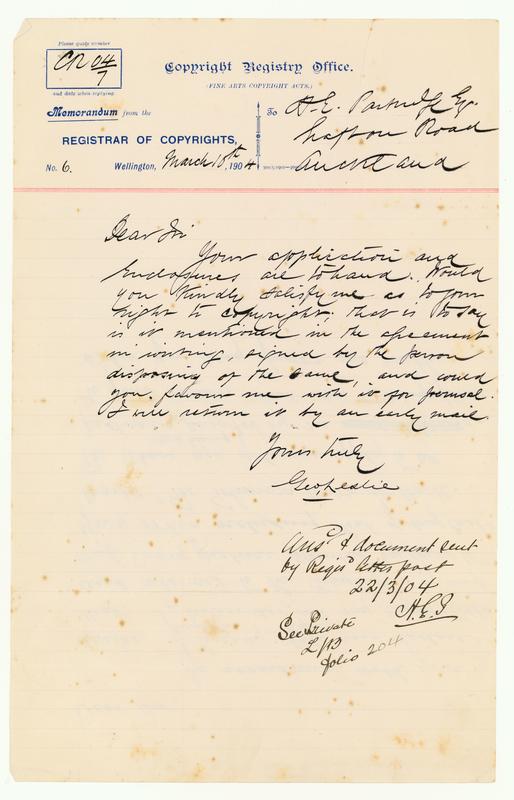 Please quote number
CR 04/7
and date when replying.
Copyright Registry Office.
(FINE ARTS COPYRIGHT ACTS.)
Memorandum from the
REGISTRAR OF COPYRIGHTS,
No. 6. Wellington, March 10th, 1904
To H.E. Partridge Esq.
Grafton Road
Auckland
Dear Sir
Your application and
Enclosures are to hand. Would
you kindly satisfy me as to your
right to copyright, that is to say
is it mentioned in the agreement
in writing, signed by the person
disposing of the same, and could
you favour me with it for perusal.
I will return it by an early mail.
Yours truly
Geo Leslie
Ansd & document sent
by Regisd letter post
22/3/04
See Private
L/B
folio 204